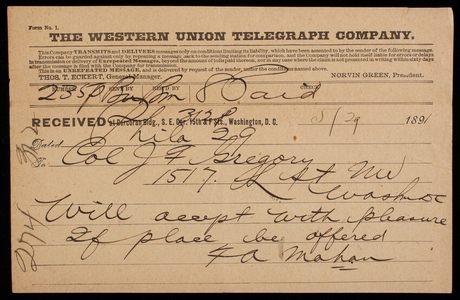 Form No. 1.
THE WESTERN UNION TELEGRAPH COMPANY.
This Company TRANSMITS and DELIVERS messages only on conditions limiting its liability, which have been assented to by the sender of the following message.
Errors can be guarded against only by repeating a message back to the sending station for comparison, and the Company will not hold itself liable for errors or delays
in transmission or delivery of Unrepeated Messages, beyond the amount of tolls paid thereon, nor in any case where the claim is not presented in writing within sixty days
after the message is filed with the Company for transmission.
This is an UNREPEATED MESSAGE, and is delivered by request of the sender, under the conditions named above.
THOS. T. ECKERT, General Manager. NORVIN GREEN, President.
NUMBER SENT BY REC'D BY CHECK
23 Paid
RECEIVED at Corcoran Bldg., S. E. Cor. 15th & F Sts., Washington, D. C. 29 1891
Dated Phila 29
To Col J F Gregory
1517. L St NW
Wash DC
Will accept with pleasure
If place be offered
F A Mahan
274